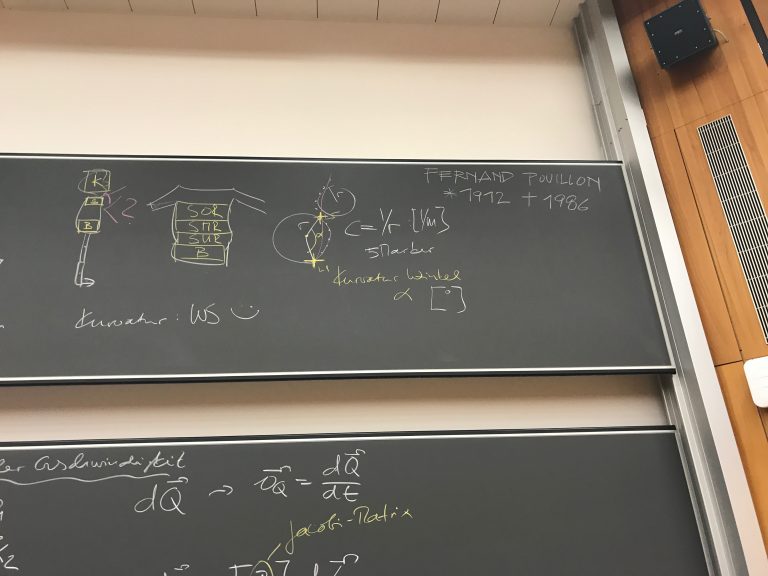 FERNAND POUILLON
* 1912 + 1986
R
B
2
SOR
SMR
SUR
B
r
C = 1/r [1/m]
5 Marker
α
L1
Kurvatur Winkel
α [°]
Kurvatur: WS
der Geschwindigkeit
dQ → v_Q = dQ/dt
Jacobi-Matrix